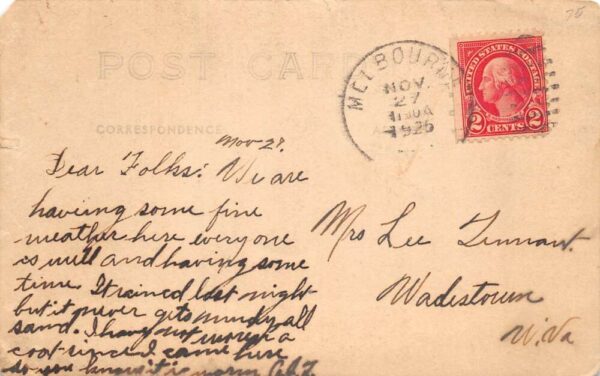 75
POST CARD
MELBOURNE
NOV
27
1925
UNITED STATES POSTAGE
2 CENTS 2
CORRESPONDENCE
Nov-27.
Dear Folks: We are
haveing some fine
weather here every one
is well and having some
time. It rained last night
but it never gets muddy all
sand. I have not worn a
coat since I came here
so you know it is warm
Mrs Lee Tennant.
Wadestown
W.Va